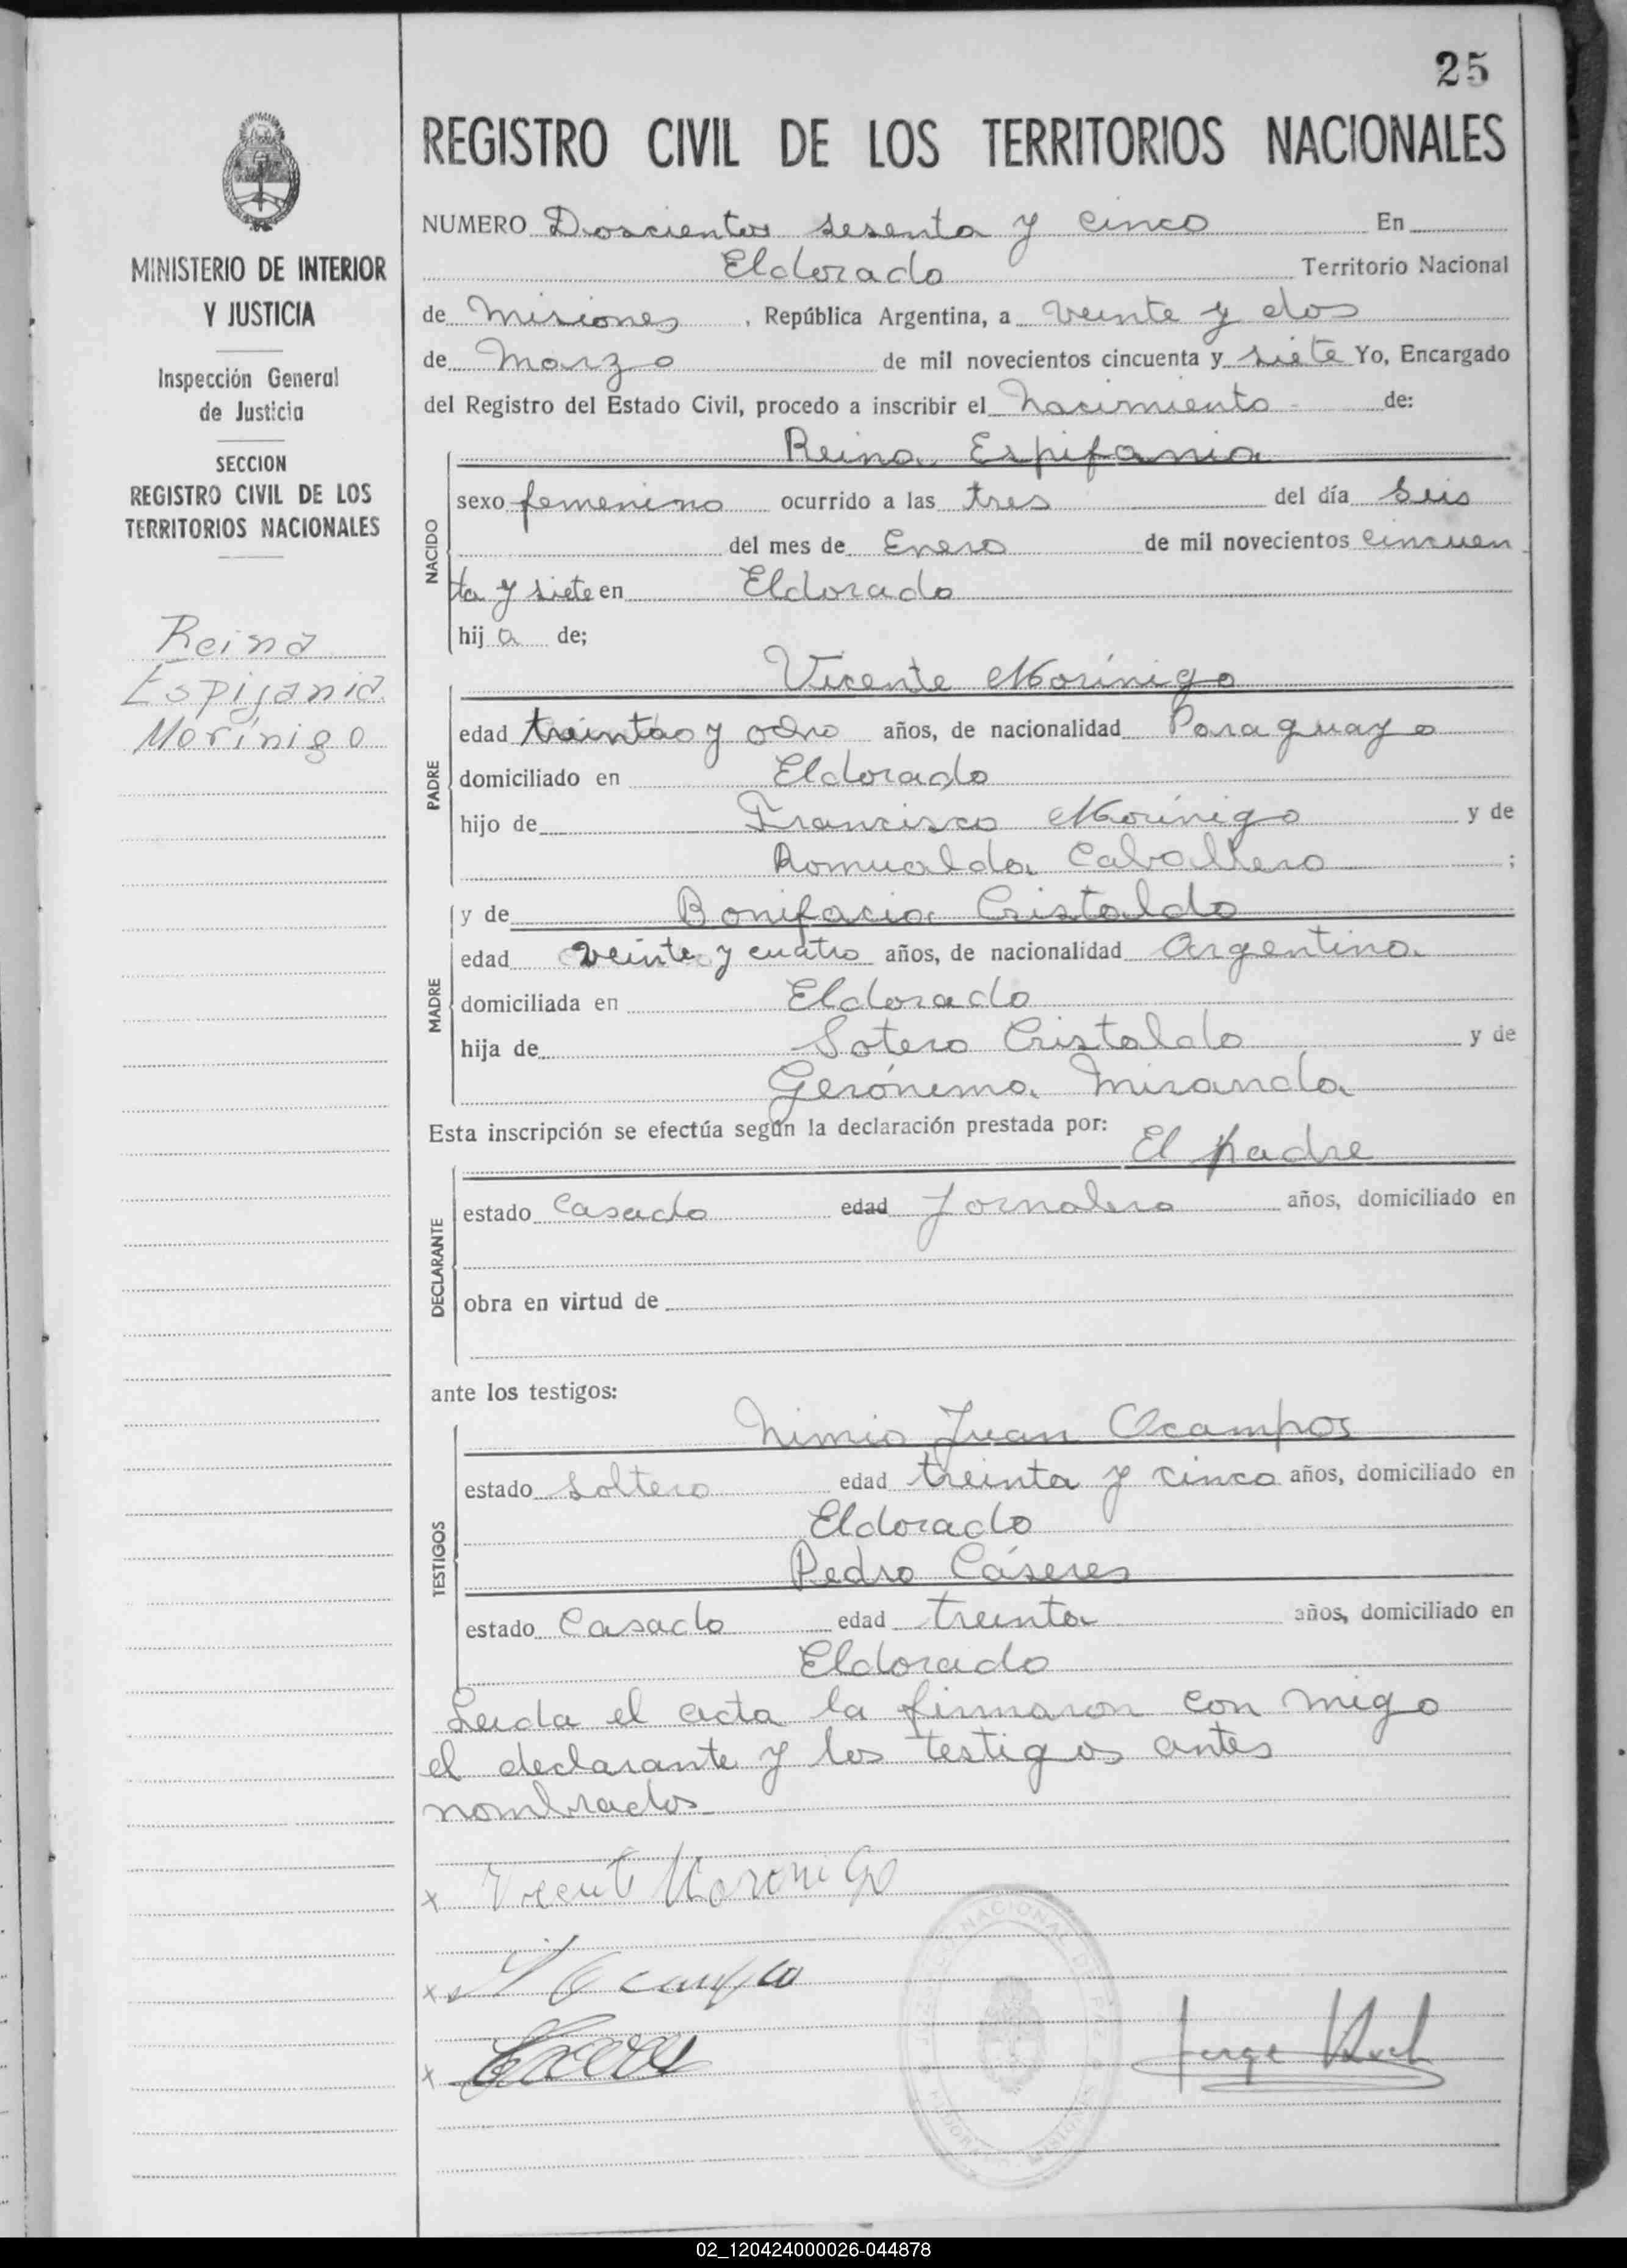 25
REGISTRO CIVIL DE LOS TERRITORIOS NACIONALES
MINISTERIO DE INTERIOR
Y JUSTICIA
Inspección General
de Justicia
SECCION
REGISTRO CIVIL DE LOS
TERRITORIOS NACIONALES
Reina
Espifania
Morínigo
NUMERO Doscientos sesenta y cinco En
Eldorado Territorio Nacional
de Misiones, República Argentina, a veinte y dos
de Marzo de mil novecientos cincuenta y siete Yo, Encargado
del Registro del Estado Civil, procedo a inscribir el nacimiento de:
NACIDO
Reina Espifania
sexo femenino ocurrido a las tres del día seis
del mes de Enero de mil novecientos cincuen
ta y siete en Eldorado
hija de;
PADRE
Vicente Morínigo
edad treinta y ocho años, de nacionalidad Paraguayo
domiciliado en Eldorado
hijo de Francisco Morínigo y de
Romualda Caballero ;
MADRE
y de Bonifacia Cristaldo
edad veinte y cuatro años, de nacionalidad Argentina
domiciliada en Eldorado
hija de Sotero Cristaldo y de
Gerónima Miranda
Esta inscripción se efectúa según la declaración prestada por:
DECLARANTE
El padre
estado Casado edad Jornalero años, domiciliado en
obra en virtud de
ante los testigos:
TESTIGOS
Nimio Juan Ocampos
estado soltero edad treinta y cinco años, domiciliado en
Eldorado
Pedro Cáseres
estado Casado edad treinta años, domiciliado en
Eldorado
Leida el acta la firmaron con migo
el declarante y los testigos antes
nombrados
x Vicente Morinigo
x Ocampo
x
Jorge
02_120424000026-044878